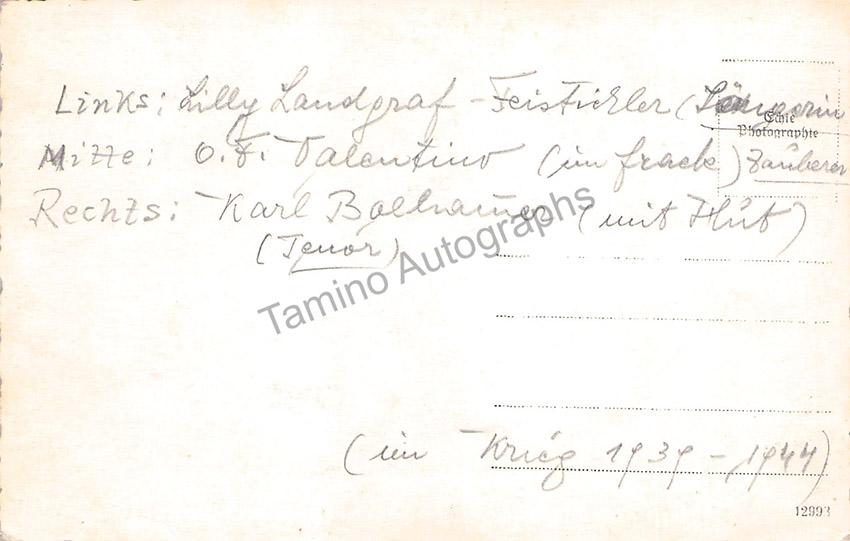 Links: Lilly Landgraf - Feistickler (Sängerin
Echte
Photographie
Mitte: O. F. Valentino (im frack) Zauberer
Rechts: Karl (mit Hut)
(Tenor)
Tamino Autographs
(im Krieg 1939 - 1944)
12993